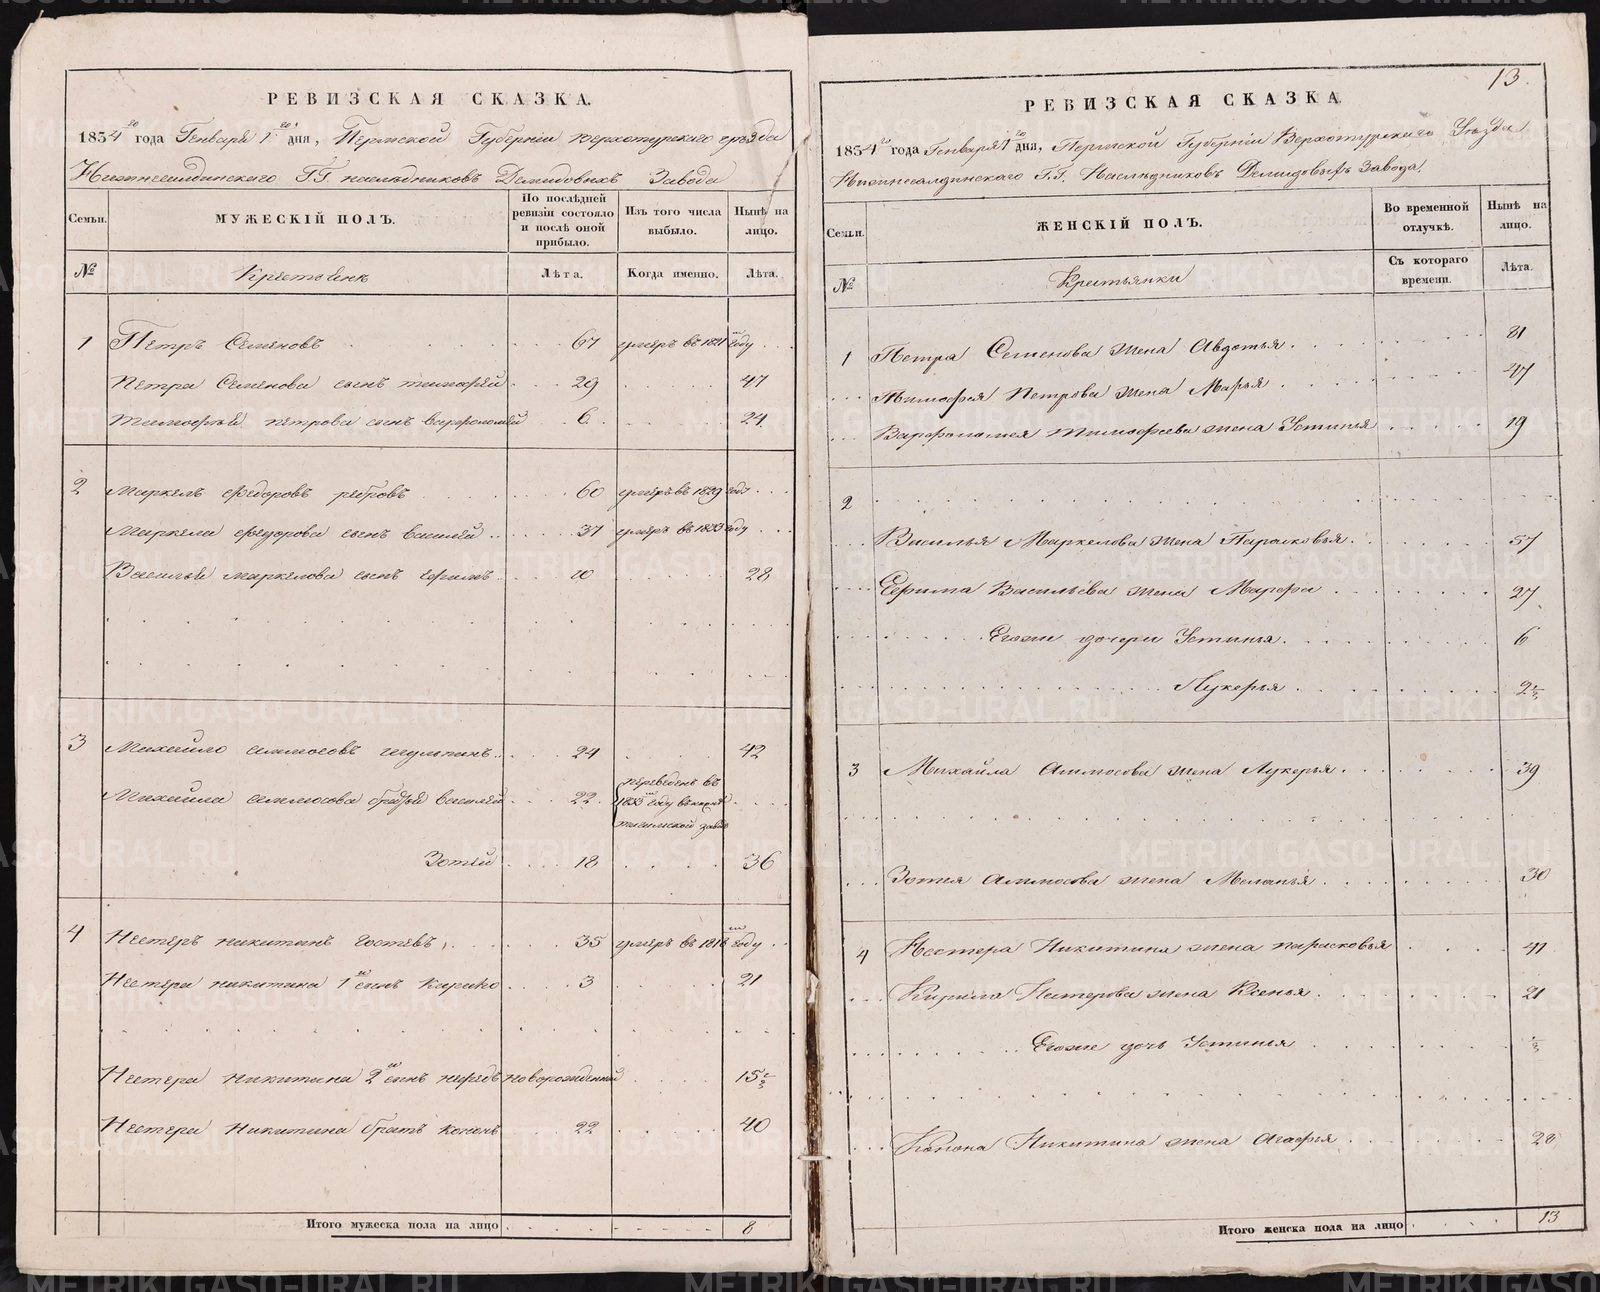 РЕВИЗСКАЯ СКАЗКА.
1834го года Генваря 1го дня, Пермской Губерніи Верхотурскаго уѣзда
Нижнесалдинскаго Г.Г. наслѣдниковъ Демидовыхъ Завода
Семьи.
МУЖЕСКІЙ ПОЛЪ.
По послѣдней ревизіи состояло и послѣ оной прибыло.
Изъ того числа выбыло.
Нынѣ на лицо.
№
Крестьяне
Лѣта.
Когда именно.
Лѣта.
1 Петръ Семеновъ 67 умеръ въ 1821м году
Петра Семенова сынъ тимофей 29 47
тимофѣя петрова сынъ варфоломей 6 24
2 Маркелъ Федоровъ 60 умеръ въ 1829 году
Маркела Федорова сынъ василей 37 умеръ въ 1833 году
Василья маркелова сынъ ефимъ 10 28
3 Михайло аммосовъ 24 42
Михайла аммосова братья василей 22 переведенъ въ
1833м году
тагильской заводъ
Зотей 18 36
4 Нестеръ никитинъ гостевъ 35 умеръ въ 1816м году
Нестера никитина 1й сынъ Кирило 3 21
Нестера никитина 2й сынъ новорожденный 15 1/2
Нестера никитина братъ кононъ 22 40
Итого мужеска пола на лицо 8
13.
РЕВИЗСКАЯ СКАЗКА
1834го года Генваря 1го дня, Пермской Губерніи Верхотурскаго Уѣзда
Нижнесалдинскаго Г.Г. Наслѣдниковъ Демидовыхъ Завода.
Семьи.
ЖЕНСКІЙ ПОЛЪ.
Во временной отлучкѣ.
Нынѣ на лицо.
№
Крестьянки
Съ котораго времени.
Лѣта.
1 Петра Семенова жена Авдотья 81
Тимофея Петрова жена Марья 47
Варфоломея тимофеева жена Устинья 19
2
Василья Маркелова жена Парасковья 57
Ефима Васильева жена Марфа 27
Егоже дочери Устинья 6
Лукерья 2 1/2
3 Михайла Аммосова жена Лукерья 39
Зотея Аммосова жена Меланья 30
4 Нестера Никитина жена парасковья 41
Кирила Нестерова жена Ксенья 21
Егоже дочь Устинья 1/2
Конона Никитина жена Агафья 28
Итого женска пола на лицо 13
METRIKI.GASO-URAL.RU